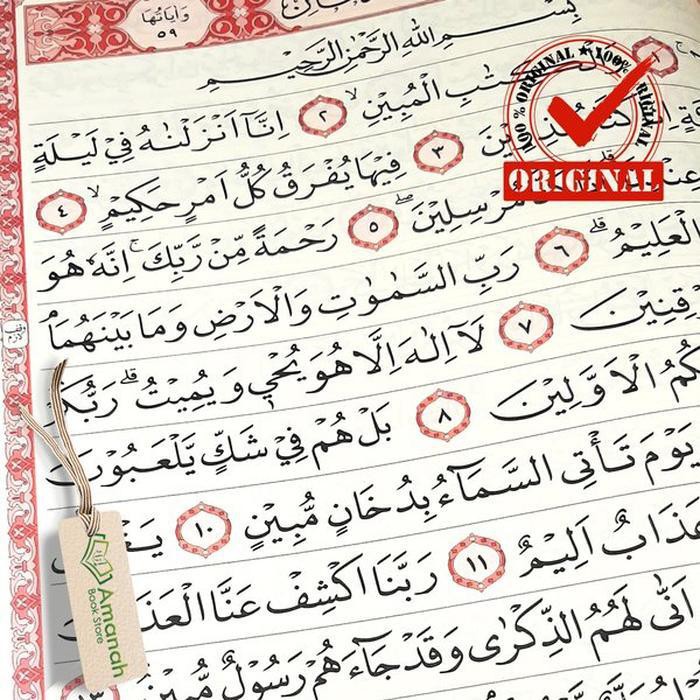 وَاٰيَاتُهَا
٥٩
بِسْمِ اللّٰهِ الرَّحْمٰنِ الرَّحِيْمِ
الْمُبِيْنِ ۙ ٢ اِنَّآ اَنْزَلْنٰهُ فِيْ لَيْلَةٍ
٣ فِيْهَا يُفْرَقُ كُلُّ اَمْرٍ حَكِيْمٍ ۙ ٤
مُرْسِلِيْنَ ۖ ٥ رَحْمَةً مِّنْ رَّبِّكَ ۗ اِنَّهٗ هُوَ
الْعَلِيْمُ ۗ ٦ رَبِّ السَّمٰوٰتِ وَالْاَرْضِ وَمَا بَيْنَهُمَا
قِنِيْنَ ٧ لَآ اِلٰهَ اِلَّا هُوَ يُحْيٖ وَيُمِيْتُ ۗ رَبُّكُمْ
كُمُ الْاَوَّلِيْنَ ٨ بَلْ هُمْ فِيْ شَكٍّ يَّلْعَبُوْنَ
يَوْمَ تَأْتِى السَّمَاۤءُ بِدُخَانٍ مُّبِيْنٍ ١٠
عَذَابٌ اَلِيْمٌ ١١ رَبَّنَا اكْشِفْ عَنَّا الْعَذَ
اَنّٰى لَهُمُ الذِّكْرٰى وَقَدْ جَاۤءَهُمْ رَسُوْلٌ مُّبِيْنٌ ١٣
100% ORIGINAL ★ 100% ORIGINAL
ORIGINAL
Amanah
Book Store